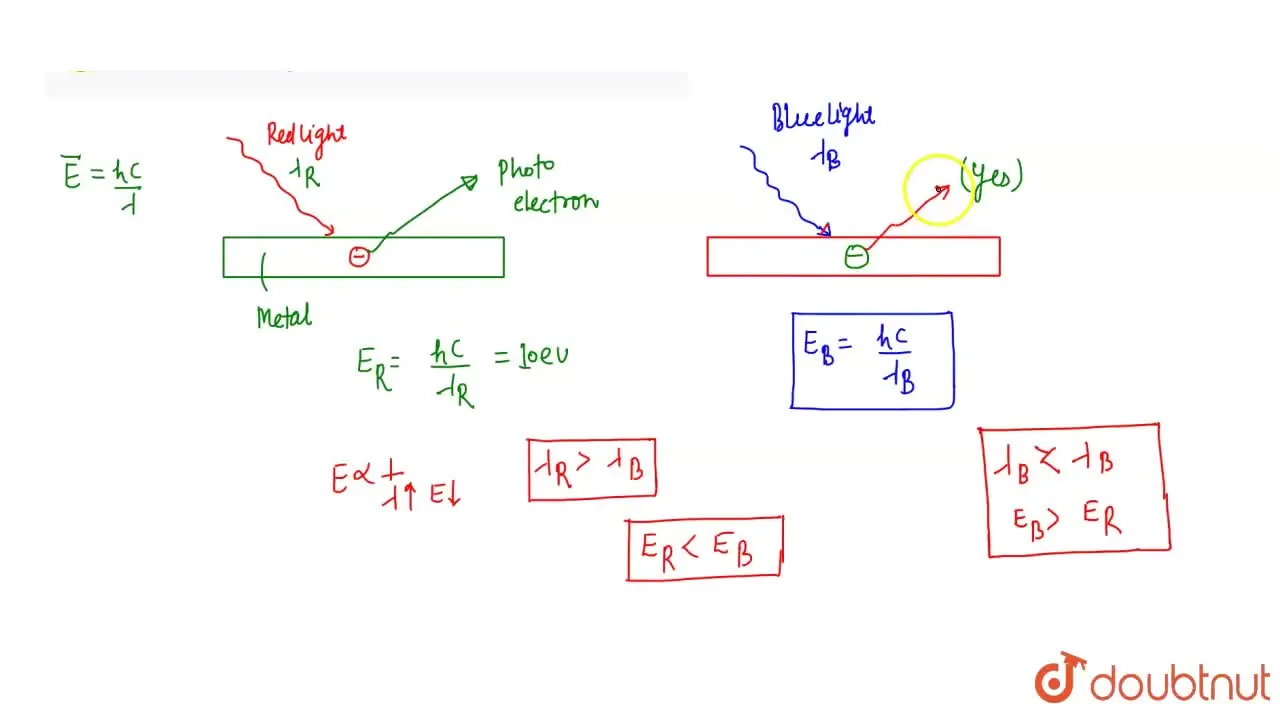 E = hc/λ
Red light
λR
Photo
electron
Metal
ER = hc/λR = 10ev
E ∝ 1/λ↑ E↓
λR > λB
ER < EB
Blue light
λB
(yes)
EB = hc/λB
λB < λB
EB > ER
doubtnut